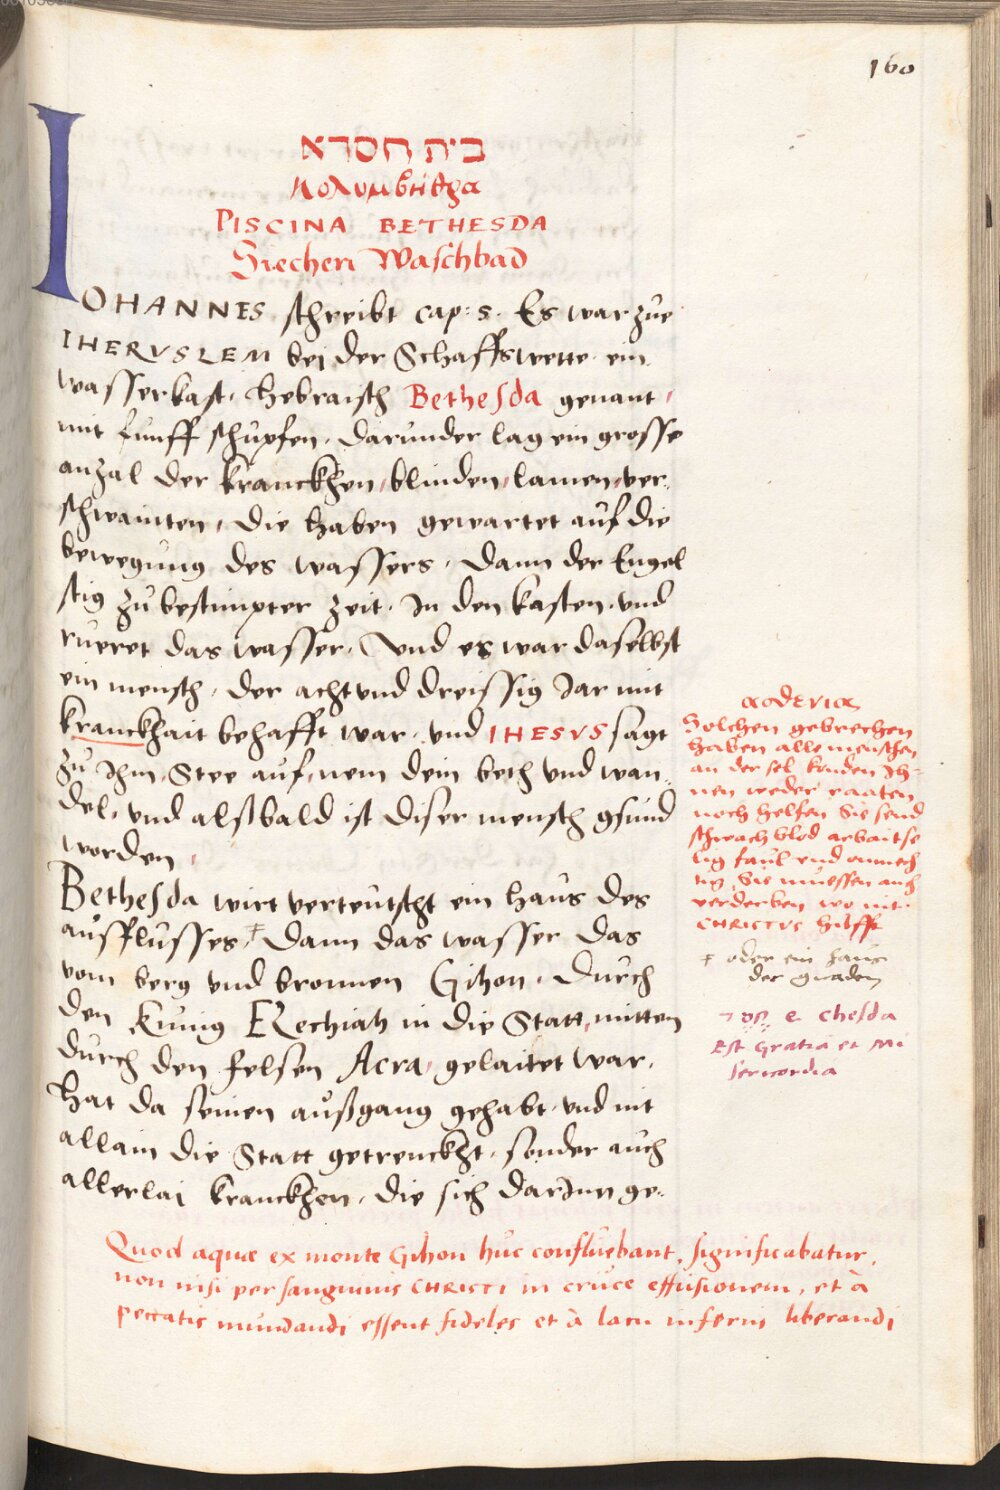 160
בית חסדא
κολυμβήθρα
PISCINA BETHESDA
Siechen Waschbad
IOHANNES schreibt cap: 5. Es war zue
IHERVSLEM bei der Schaffswette ein
wasserkast, hebraisch Bethesda genant,
mit funff schupfen, darunder lag ein grosse
anzal der kranckhen, blinden, lamen, ver
schwainten, die haben gewartet auf die
bewegung des wassers, dann der Engel
stig zu bestimpter zeit, In den kasten, und
rueret das wasser, Und es war daselbst
ein mensch, der acht und dreissig Jar mit
kranckhait behafft war, und IHESVS sagt
zu Ihm, Stee auf, nem dein beth und wan
del, und alsbald ist diser mensch gsund
worden,
Bethesda wirt verteutscht ein haus des
ausflusses, ‡ Dann das wasser das
vom berg und bronnen Gihon, durch
den Kunig EZechiah in die Statt, mitten
durch den felsen Acra, gelaitet war,
Hat da seinen außgang gehabt, und nit
allain die Statt getrenckht, sonder auch
allerlai kranckhen, die sich darInn ge-
Solchen gebrechen
haben alle menschen
an der sel, konden Ih-
nen weder raaten
noch helfen Sie send
schwach blöd arbaitse
lig faul und onmech
tig, Sie muessen auch
verderben wo nit
CHRISTVS hilfft
‡ oder ein haus
der gnaden
chesda
Est Gratia et Mi
sericordia
Quod aquæ ex monte Gihon huc confluebant, significabatur,
non nisi per sanguinis CHRISTI in cruce effusionem, et à
peccatis mundandi essent fideles et à lacu inferni liberandi